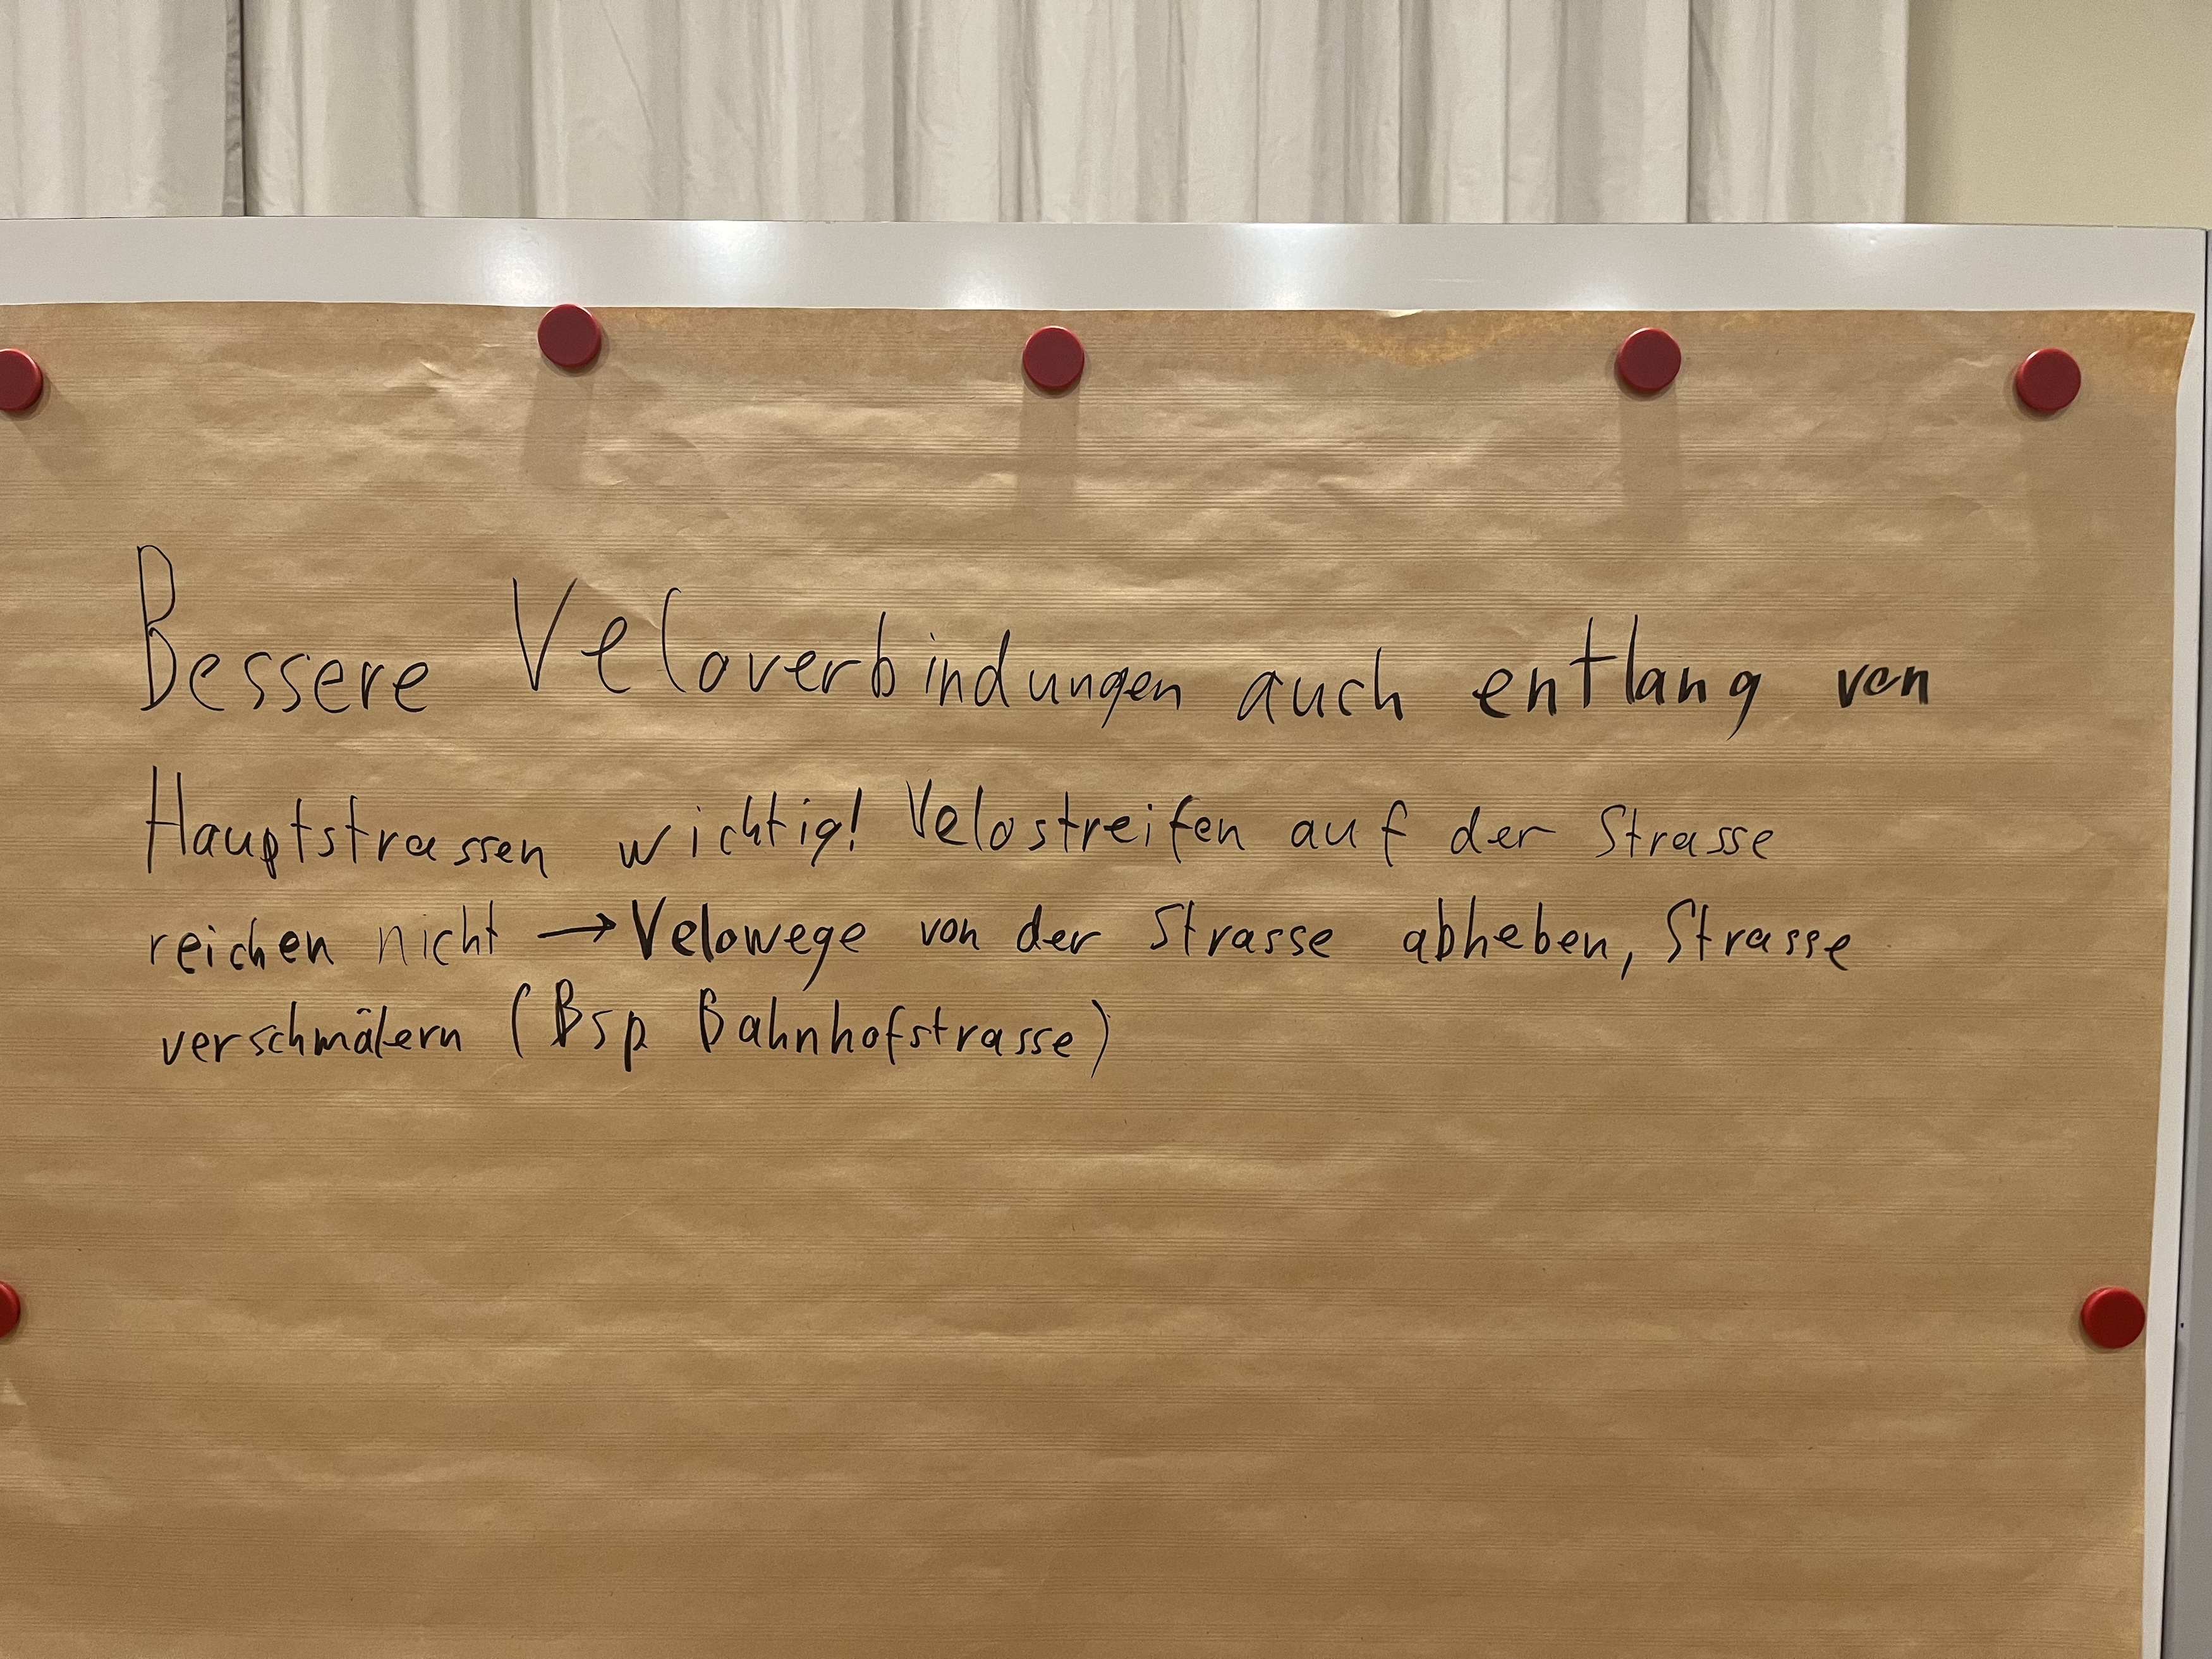 Bessere Veloverbindungen auch entlang von
Hauptstrassen wichtig! Velostreifen auf der Strasse
reichen nicht → Velowege von der Strasse abheben, Strasse
verschmälern (Bsp Bahnhofstrasse)